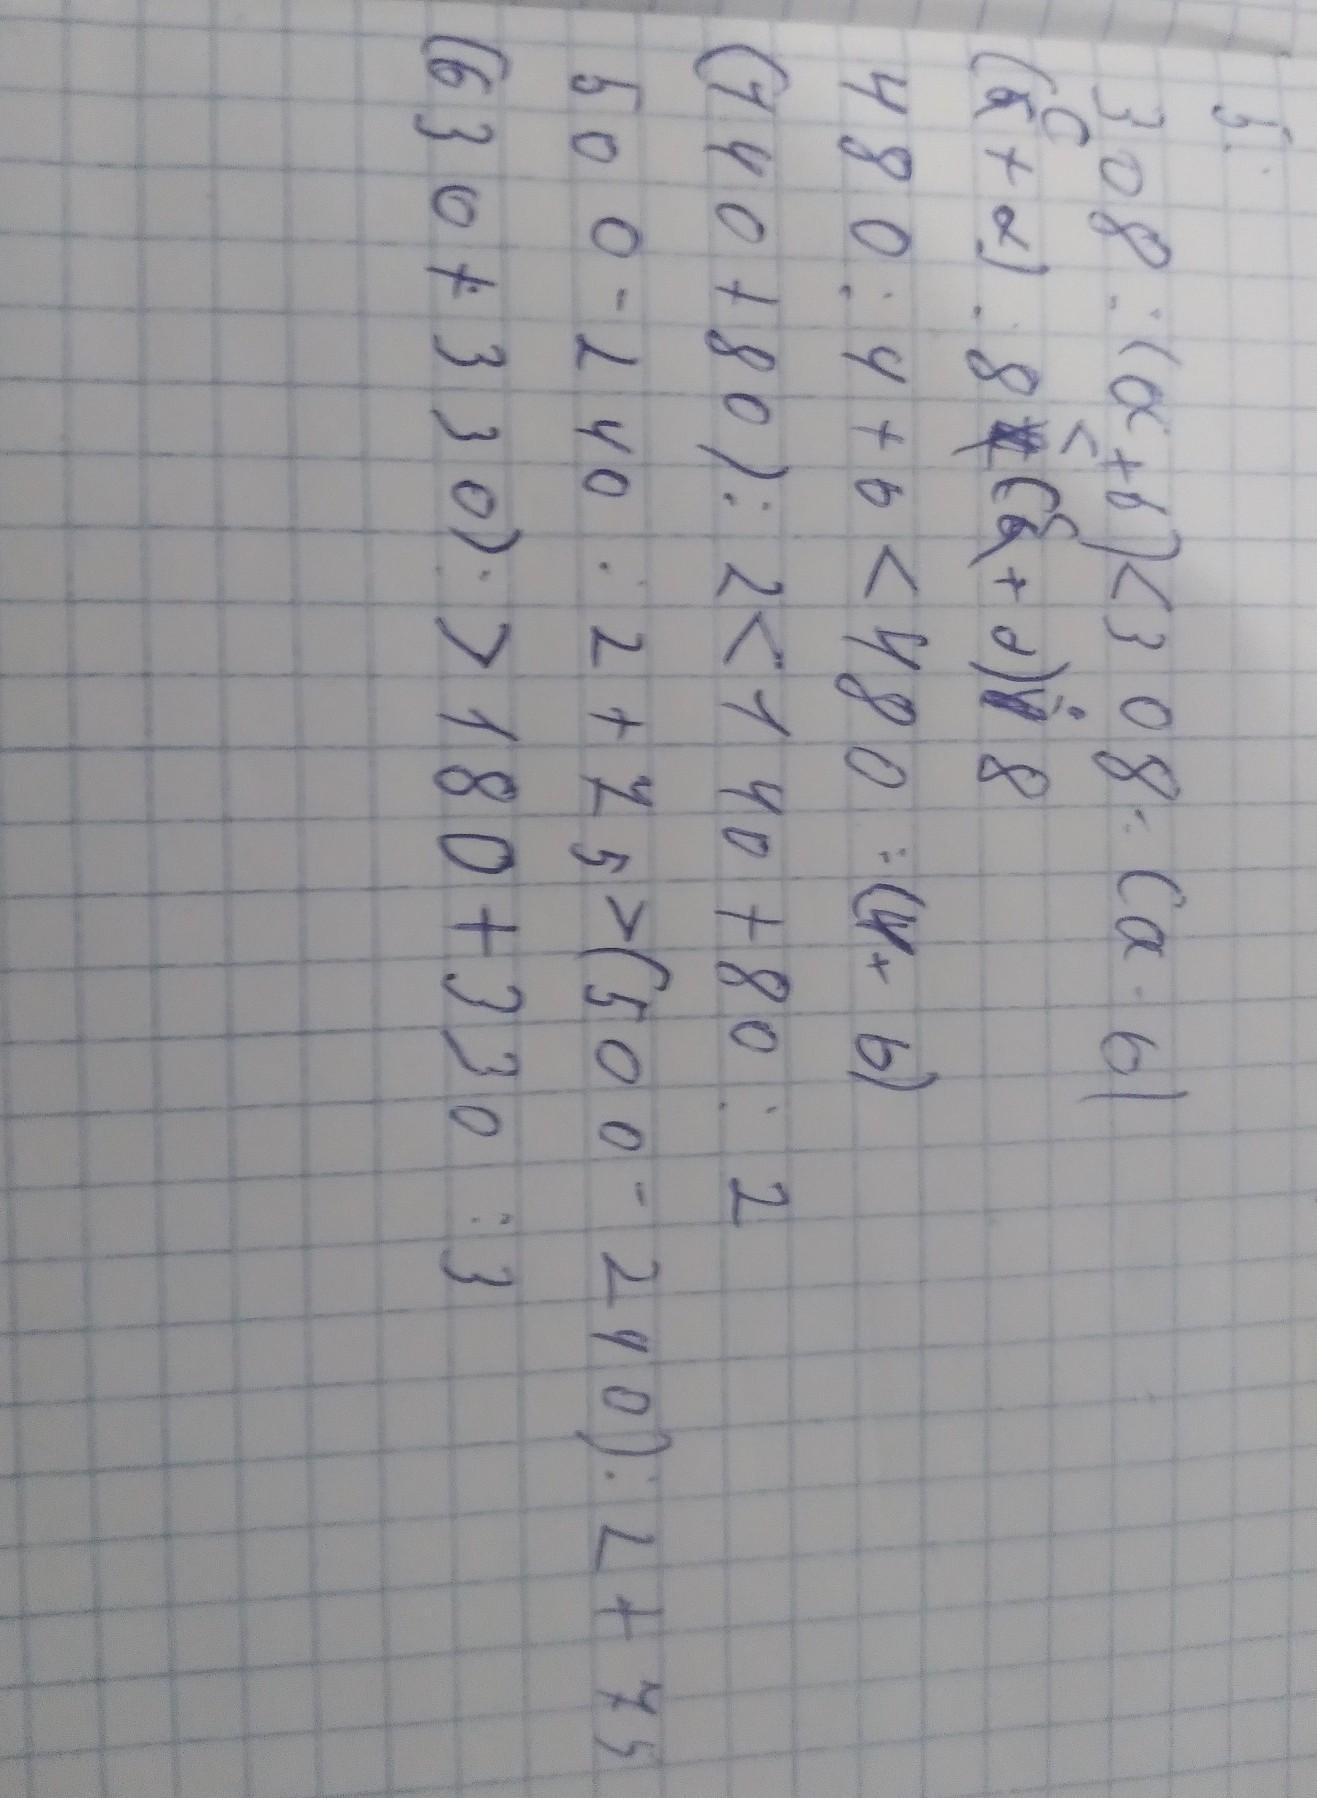 5.
308:(a+b)<308:(a·b)
(c+d):8<(c+d):8
480:4+b<480:(4+b)
(140+80):2<140+80:2
500-240:2+75>(500-240):2+75
(630+330):>180+330:3